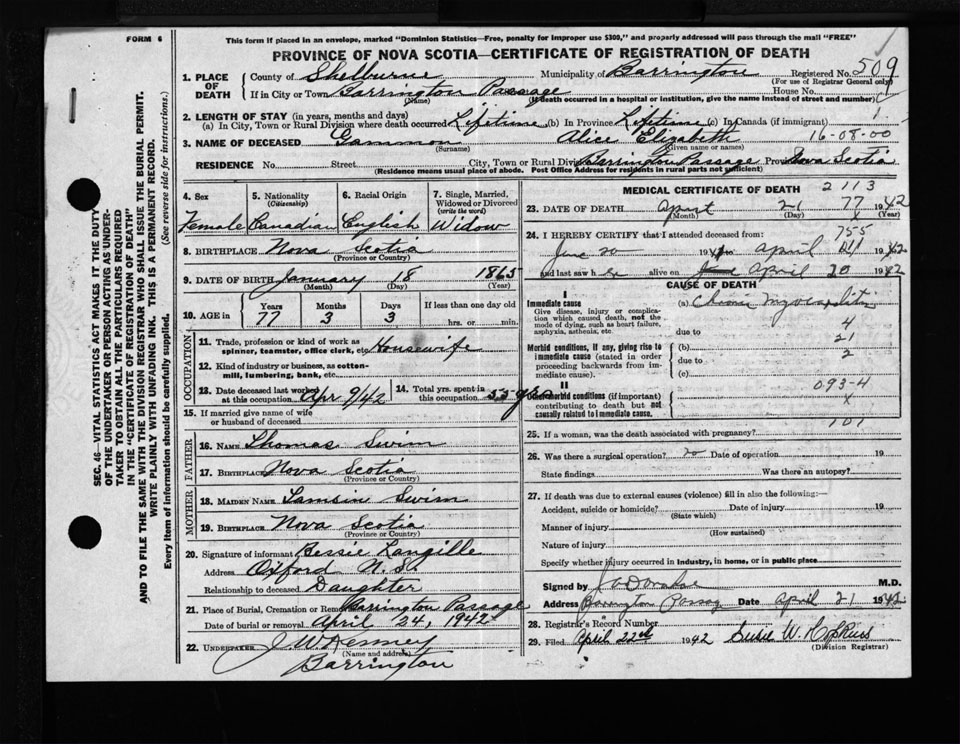 FORM 6
This form if placed in an envelope, marked "Dominion Statistics—Free, penalty for improper use $300," and properly addressed will pass through the mail "FREE"
PROVINCE OF NOVA SCOTIA—CERTIFICATE OF REGISTRATION OF DEATH
SEC. 46—VITAL STATISTICS ACT MAKES IT THE DUTY
OF THE UNDERTAKER OR PERSON ACTING AS UNDER-
TAKER TO OBTAIN ALL THE PARTICULARS REQUIRED
IN THE "CERTIFICATE OF REGISTRATION OF DEATH"
AND TO FILE THE SAME WITH THE DIVISION REGISTRAR WHO SHALL ISSUE THE BURIAL PERMIT.
WRITE PLAINLY WITH UNFADING INK. THIS IS A PERMANENT RECORD.
Every item of information should be carefully supplied. (See reverse side for instructions.)
1. PLACE OF DEATH County of Shelburne Municipality of Barrington Registered No. 509
(For use of Registrar General only)
If in City or Town Barrington Passage House No.
(Name) (If death occurred in a hospital or institution, give the name instead of street and number)
2. LENGTH OF STAY (in years, months and days)
(a) In City, Town or Rural Division where death occurred Lifetime (b) In Province Lifetime (c) In Canada (if immigrant) 1
3. NAME OF DECEASED Gammon Alice Elizabeth 16-08-00
(Surname) (Given name or names)
RESIDENCE No. Street City, Town or Rural Div Barrington Passage Prov Nova Scotia
(Residence means usual place of abode. Post Office Address for residents in rural parts not sufficient)
4. Sex Female
5. Nationality (Citizenship) Canadian
6. Racial Origin English
7. Single, Married, Widowed or Divorced (write the word) Widow
8. BIRTHPLACE Nova Scotia
(Province or Country)
9. DATE OF BIRTH January 18 1865
(Month) (Day) (Year)
10. AGE in Years 77 Months 3 Days 3 If less than one day hrs. or min.
OCCUPATION
11. Trade, profession or kind of work as spinner, teamster, office clerk, etc Housewife
12. Kind of industry or business, as cotton-mill, lumbering, bank, etc.
13. Date deceased last worked at this occupation Apr 9/42
14. Total yrs. spent in this occupation 55 yrs
15. If married give name of wife or husband of deceased
FATHER
16. NAME Thomas Swim
17. BIRTHPLACE Nova Scotia
(Province or Country)
MOTHER
18. MAIDEN NAME Tamsin Swim
19. BIRTHPLACE Nova Scotia
(Province or Country)
20. Signature of informant Bessie Langille
Address Oxford N.S.
Relationship to deceased Daughter
21. Place of Burial, Cremation or Remo Barrington Passage
Date of burial or removal April 24, 1942
22. UNDERTAKER J. W. Kenney
(Name and address)
Barrington
MEDICAL CERTIFICATE OF DEATH 2113
23. DATE OF DEATH April 21 77 1942
(Month) (Day) x
24. I HEREBY CERTIFY that I attended deceased from: 755
June 20 19 to April 21 1942
and last saw h er alive on April 20 1942
CAUSE OF DEATH
I
Immediate cause
Give disease, injury or complication which caused death, not the mode of dying, such as heart failure, asphyxia, asthenia, etc.
(a) Chronic
4
due to 21
Morbid conditions, if any, giving rise to immediate cause (stated in order proceeding backwards from immediate cause).
(b) 2
due to
(c)
II
Other morbid conditions (if important) contributing to death but not causally related to immediate cause.
093-4
x
701
25. If a woman, was the death associated with pregnancy?
26. Was there a surgical operation? no Date of operation 19
State findings Was there an autopsy?
27. If death was due to external causes (violence) fill in also the following:—
Accident, suicide or homicide? Date of injury 19
(State which)
Manner of injury
(How sustained)
Nature of injury
Specify whether injury occurred in industry, in home, or in public place
Signed by M.D.
Address Barrington Passag Date April 21 1942
28. Registrar's Record Number
29. Filed April 22nd 1942 Susie W. Hopkins
(Division Registrar)